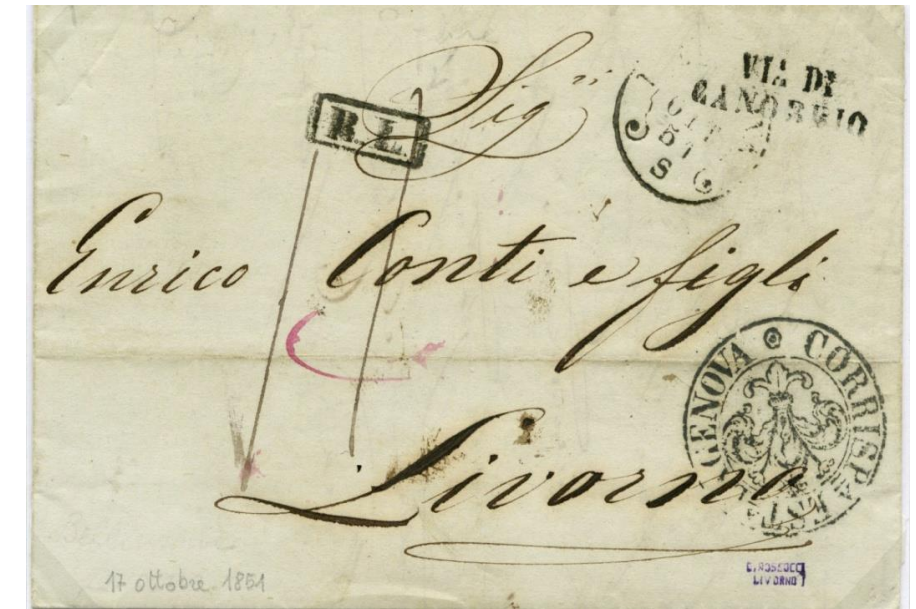 Sig.ri
VIA DI
CANOBBIO
R.L.
OTT
51
S
Enrico Conti e figli
GENOVA CORRISP
Livorno
17 ottobre 1851
LIVORNO